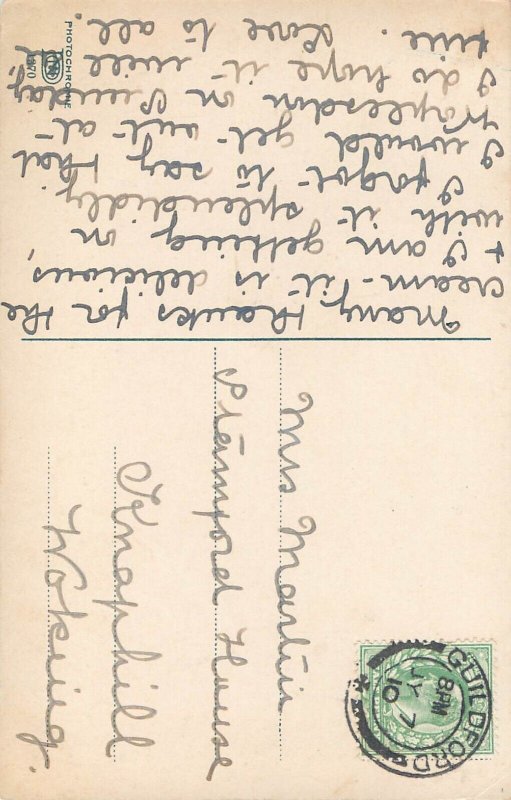 Many thanks for the
cream – it is delicious,
& I am getting on
with it splendidly.
I forgot to say that
I would get out at
Worplesdon on Sunday,
I do hope it will be
fine. Love to all.
PHOTOCHROME
Mrs Martin
Stamford House
Knaphill
Woking.
GUILDFORD
8PM
JY 7
10